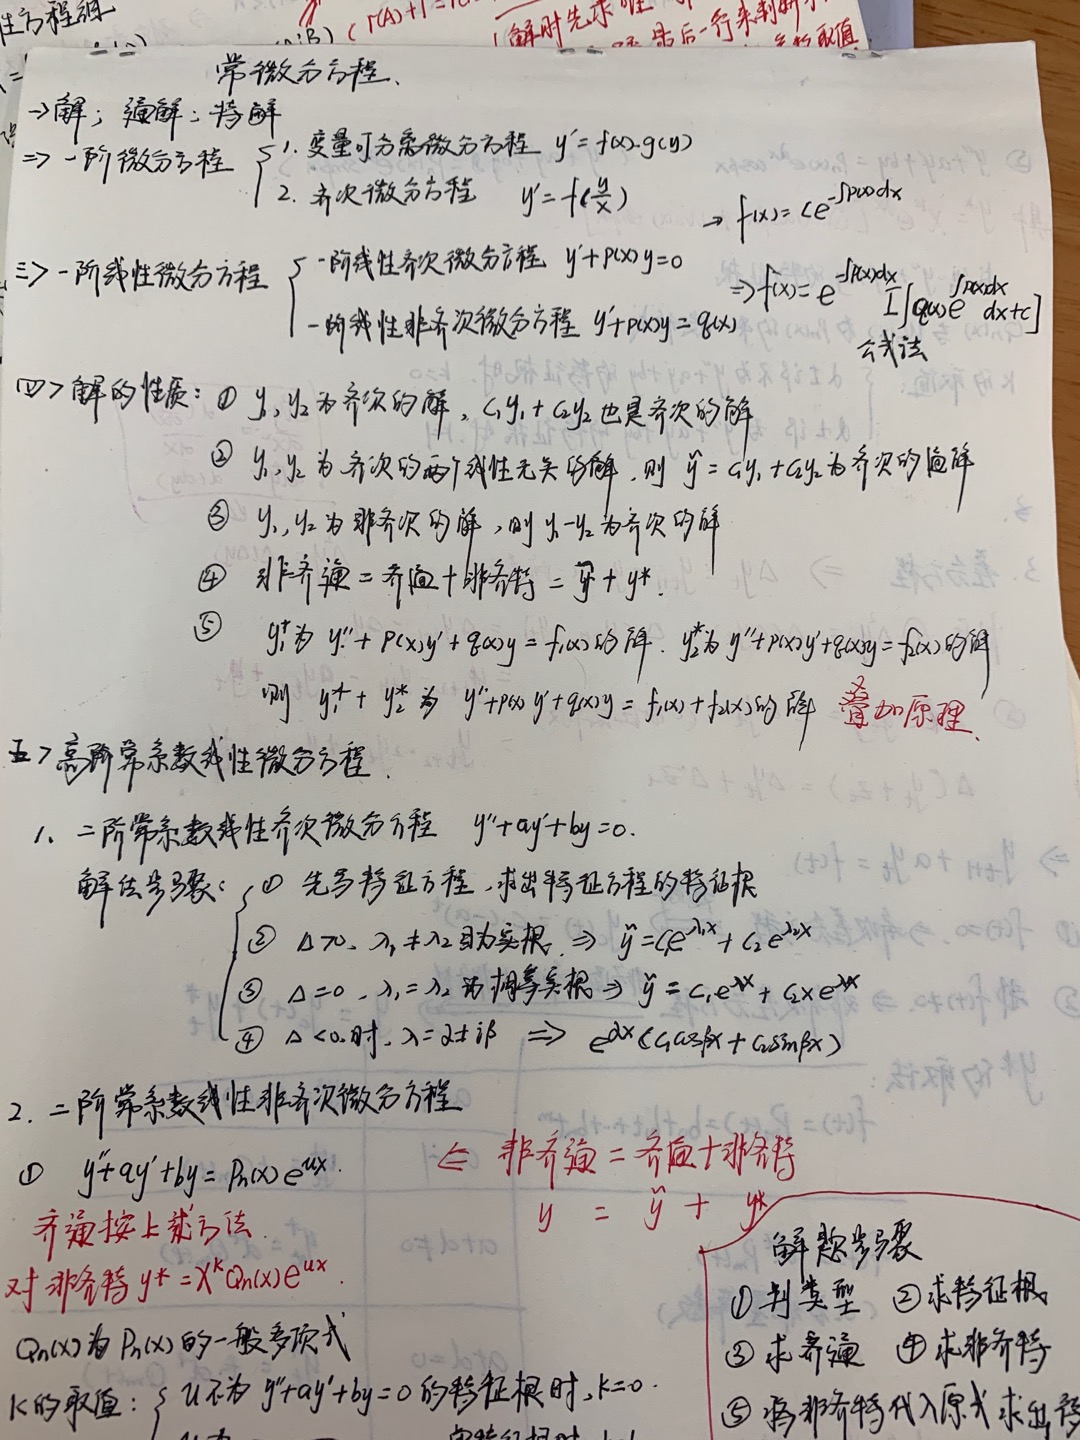 性方程组
(r(A)+1=
解时先求
最后一行来判断
取值
常微分方程.
一>解; 通解; 特解
二>一阶微分方程 { 1. 变量可分离微分方程 y'=f(x)·g(y)
2. 齐次微分方程 y'=f(y/x)
→ f(x)=Ce^{-∫p(x)dx}
三>一阶线性微分方程 { 一阶线性齐次微分方程 y'+p(x)y=0
一阶线性非齐次微分方程 y'+p(x)y=q(x)
⇒f(x)=e^{-∫p(x)dx}[∫q(x)e^{∫p(x)dx}dx+c]
公式法
四>解的性质: ① y₁,y₂为齐次的解, C₁y₁+C₂y₂也是齐次的解
② y₁,y₂为齐次的两个线性无关的解,则 ỹ=C₁y₁+C₂y₂为齐次的通解
③ y₁,y₂为非齐次的解,则y₁-y₂为齐次的解
④ 非齐通=齐通+非齐特=ỹ+y*.
⑤ y₁*为y''+p(x)y'+q(x)y=f₁(x)的解. y₂*为y''+p(x)y'+q(x)y=f₂(x)的解
则 y₁*+y₂*为 y''+p(x)y'+q(x)y=f₁(x)+f₂(x)的解 叠加原理.
五>高阶常系数线性微分方程.
1. 二阶常系数线性齐次微分方程 y''+ay'+by=0.
解法步骤: { ① 先写特征方程,求出特征方程的特征根
② Δ>0, λ₁≠λ₂且为实根, ⇒ ỹ=C₁e^{λ₁x}+C₂e^{λ₂x}
③ Δ=0, λ₁=λ₂为相等实根⇒ ỹ=C₁e^{λx}+C₂xe^{λx}
④ Δ<0时, λ=α±iβ ⇒ e^{αx}(C₁cosβx+C₂sinβx)
2. 二阶常系数线性非齐次微分方程
⇐ 非齐通=齐通+非齐特
① y''+ay'+by=Pn(x)e^{ux}.
y = ỹ + y*
齐通按上述方法.
对非齐特y*=x^kQn(x)e^{ux}.
Qn(x)为Pn(x)的一般多项式
k的取值: { u不为y''+ay'+by=0的特征根时,k=0.
解题步骤
①判类型 ②求特征根
③求齐通 ④求非齐特
⑤将非齐特代入原式求出